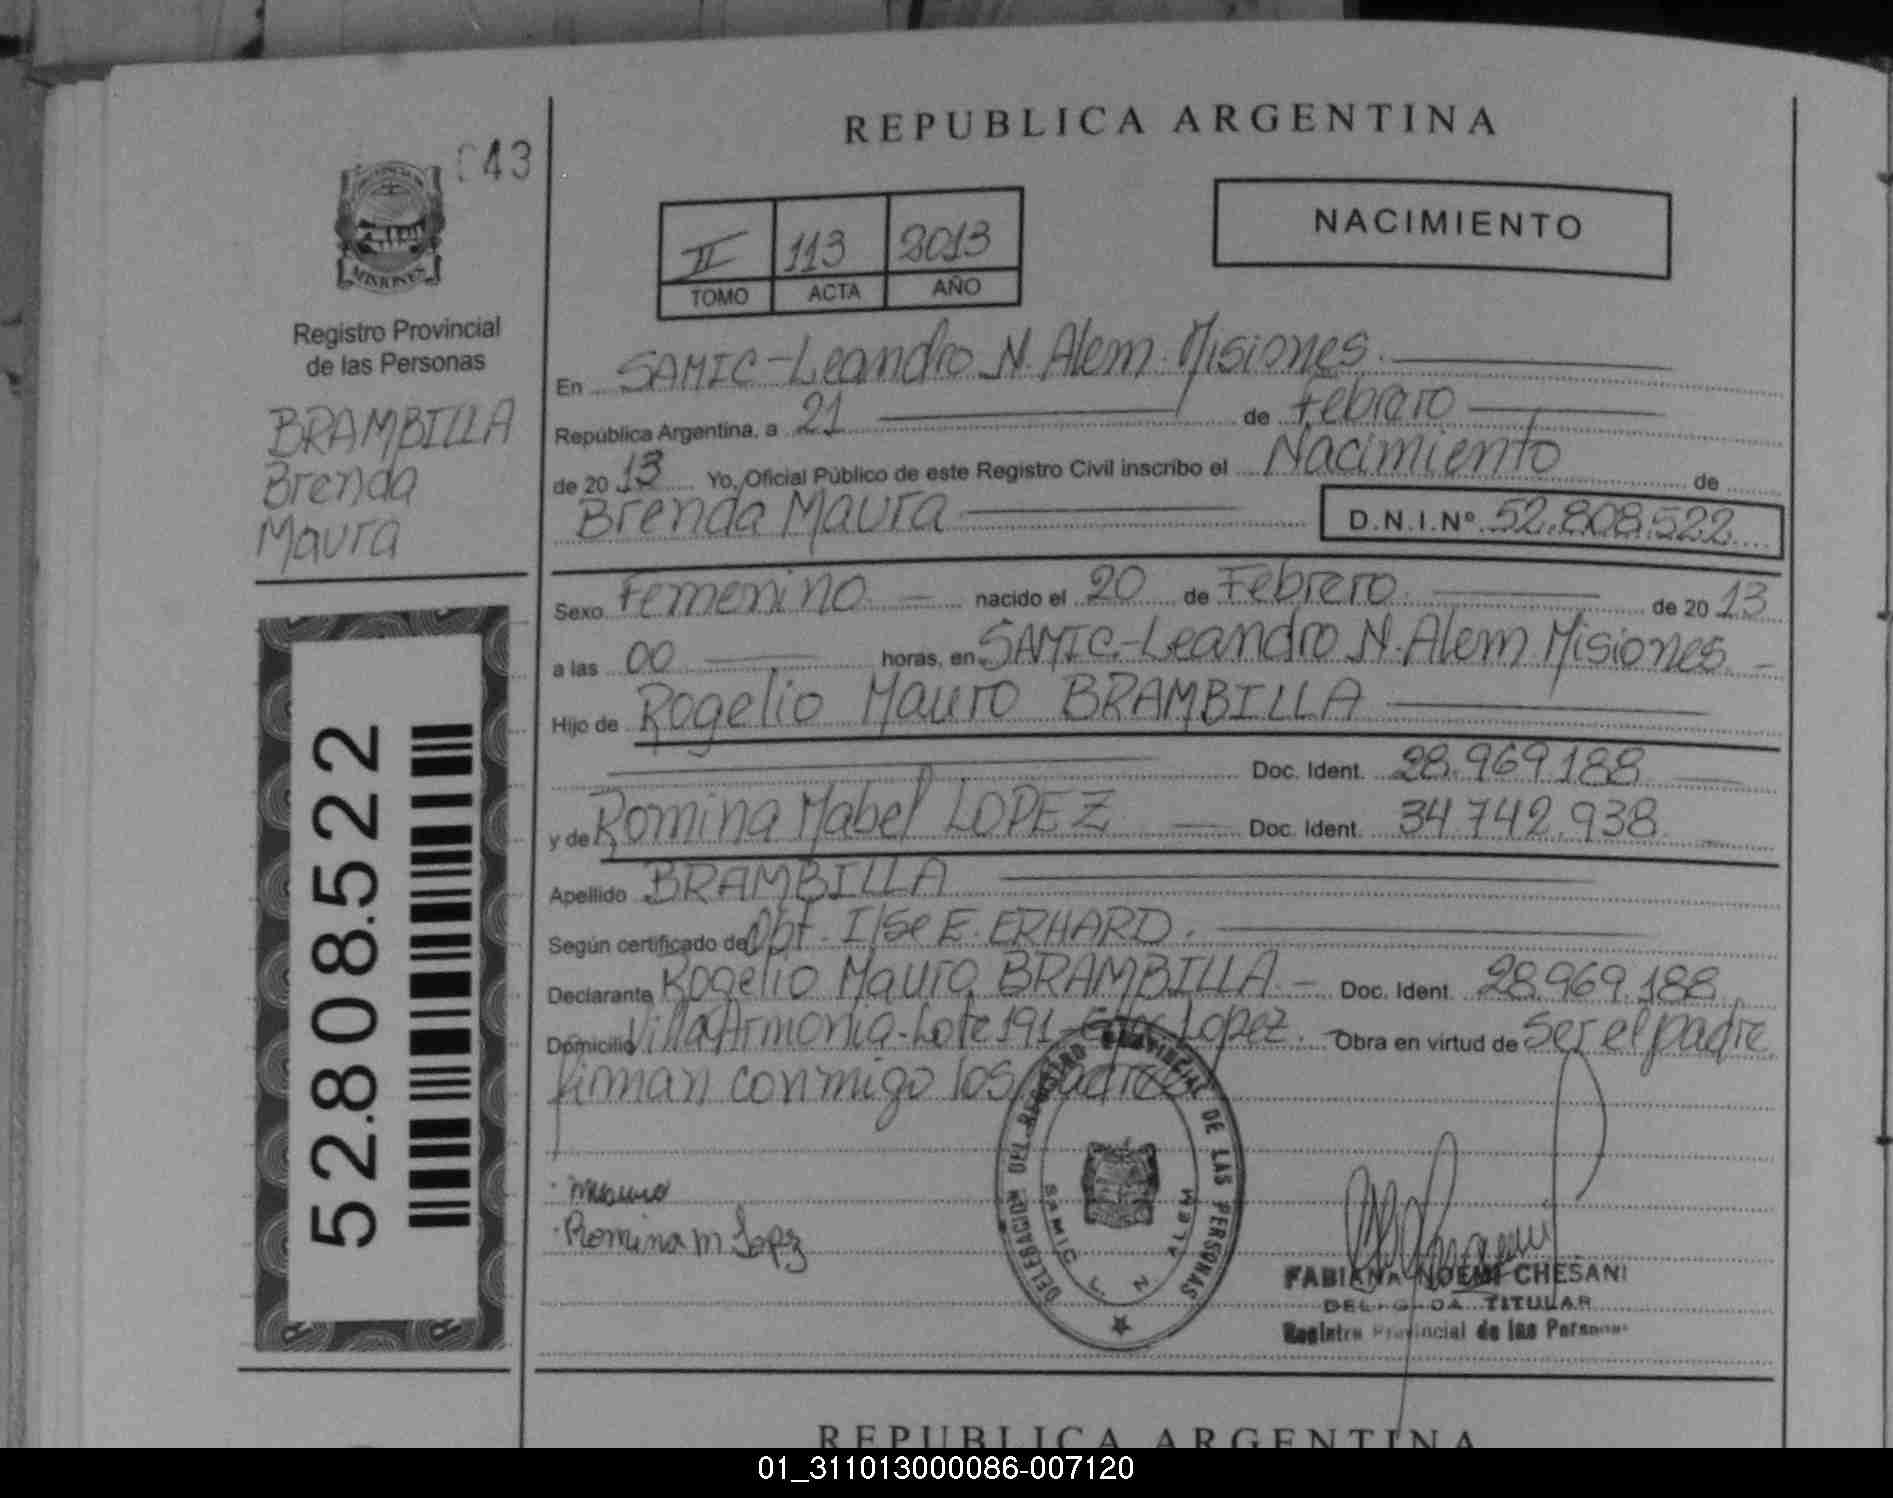 REPUBLICA ARGENTINA
043
MISIONES
Registro Provincial
de las Personas
BRAMBILLA
Brenda
Maura
52.808.522
II 113 2013
TOMO ACTA AÑO
NACIMIENTO
En SAMIC-Leandro N. Alem. Misiones.
República Argentina, a 21 de Febrero
de 2013 Yo, Oficial Público de este Registro Civil inscribo el Nacimiento de
Brenda Maura D.N.I.Nº 52.808.522
Sexo Femenino nacido el 20 de Febrero de 2013
a las 00 horas, en SAMIC.-Leandro N. Alem Misiones
Hijo de Rogelio Mauro BRAMBILLA
Doc. Ident. 28.969.188
y de Romina Mabel LOPEZ Doc. Ident. 34.742.938
Apellido BRAMBILLA
Según certificado de Obt. Ilse E. ERHARD.
Declarante Rogelio Mauro BRAMBILLA Doc. Ident. 28.969.188
Domicilio Villa Armonia-Lote 191 Lopez. Obra en virtud de Ser el padre
firman conmigo los padres
Romina M Lopez
DELEGACION REGISTRO PROVINCIAL DE LAS PERSONAS
SAMIC L. N. ALEM
FABIANA NOEMI CHESANI
DELEGADA TITULAR
Registro Provincial de las Personas
REPUBLICA ARGENTINA
01_311013000086-007120